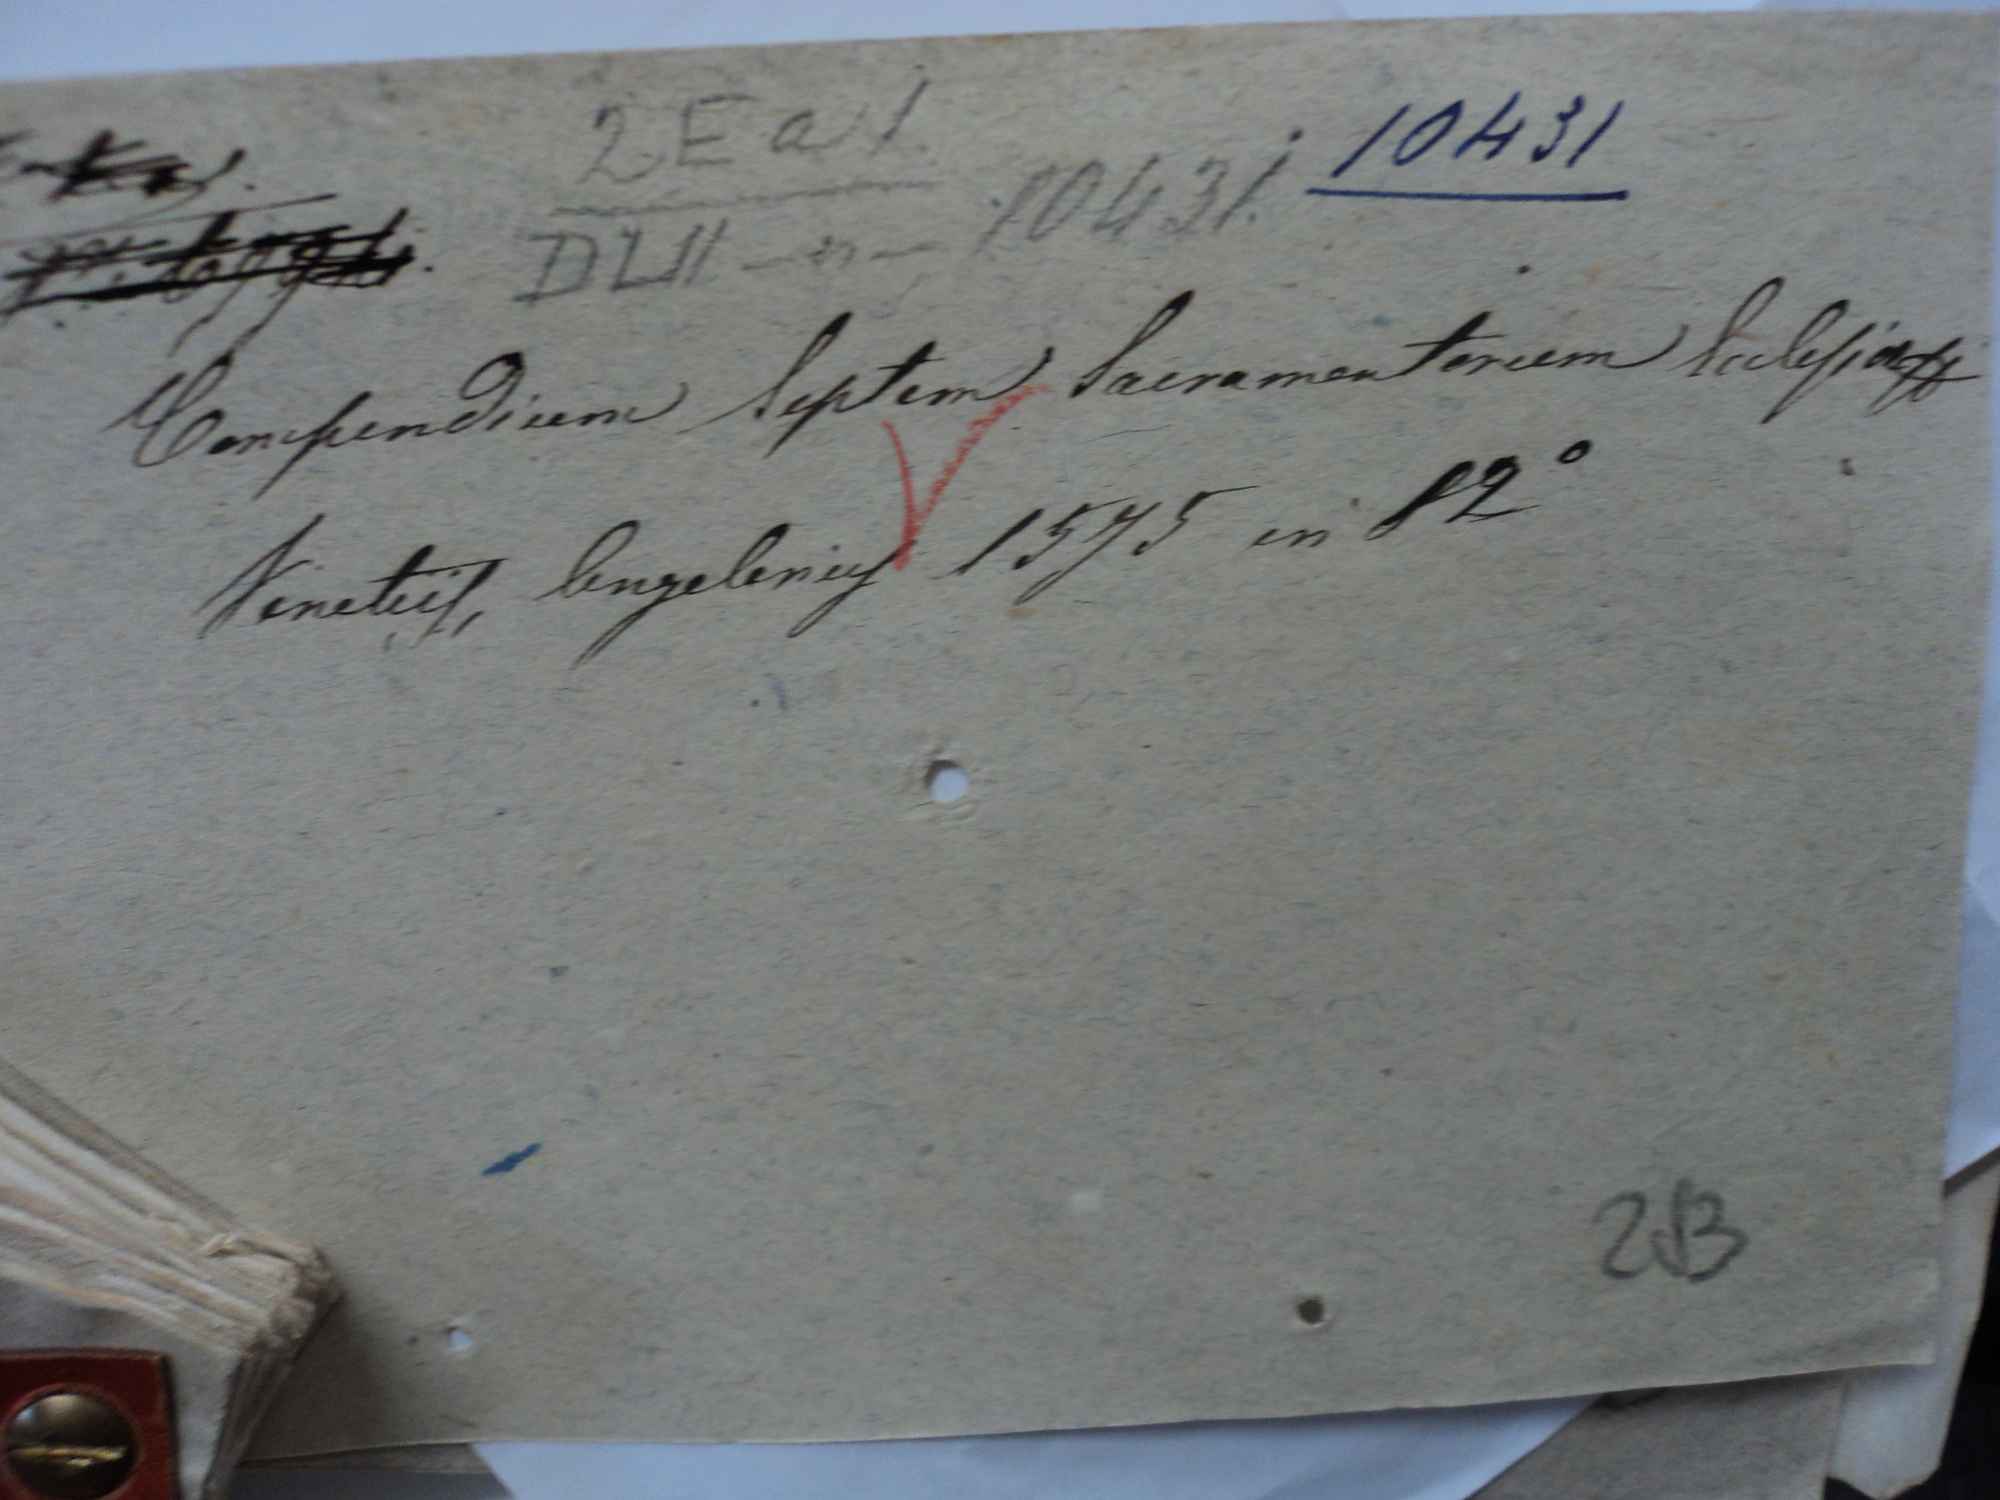 2 E a 1.
DLH - " - 10431. 10431
Compendium Septem Sacramentorum Ecclesiae
Venetiis, 1575 in 12°
2B